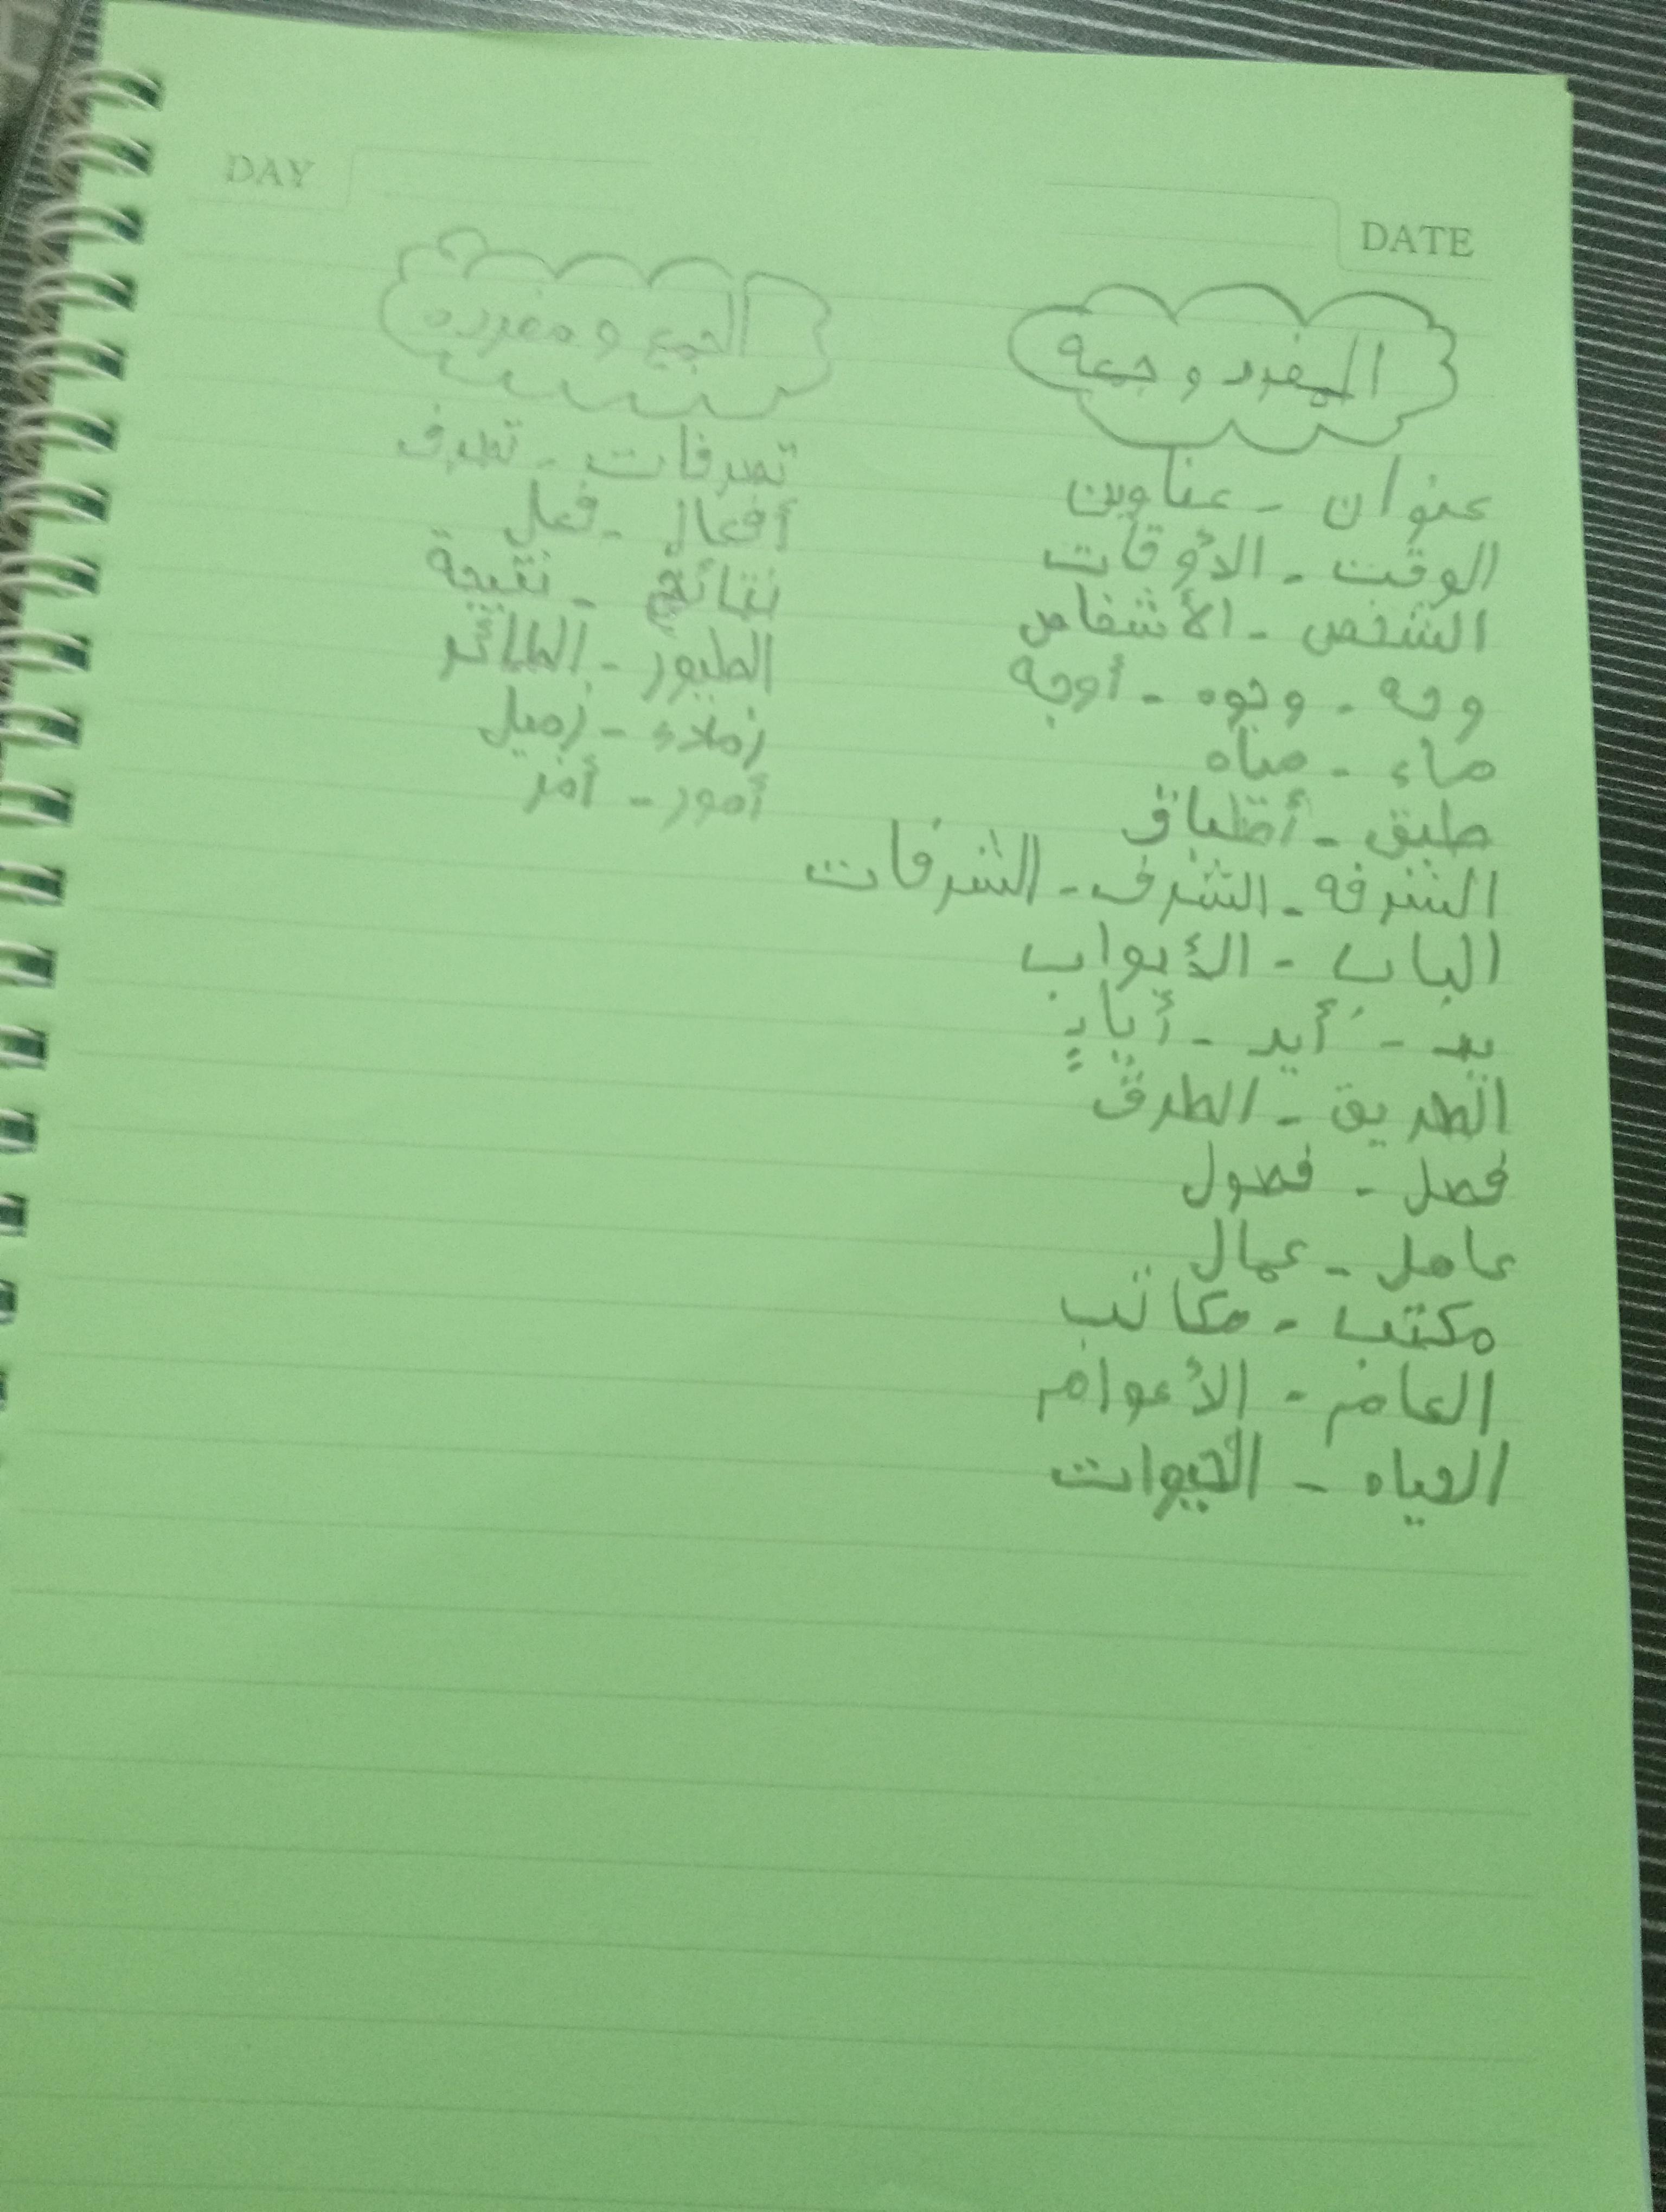 DAY
DATE
المفرد وجمعه
عنوان - عناوين
الوقت - الأوقات
الشخص - الأشخاص
وجه - وجوه - أوجه
ماء - مياه
طبق - أطباق
الشرفه - الشرف - الشرفات
الباب - الأبواب
يد - أيد - أيادٍ
الطريق - الطرق
فصل - فصول
عامل - عمال
مكتب - مكاتب
العام - الأعوام
الحياه - الحيوات
الجمع و مفرده
تصرفات - تصرف
أفعال - فعل
نتائج - نتيجة
الطيور - الطائر
زملاء - زميل
أمور - أمر